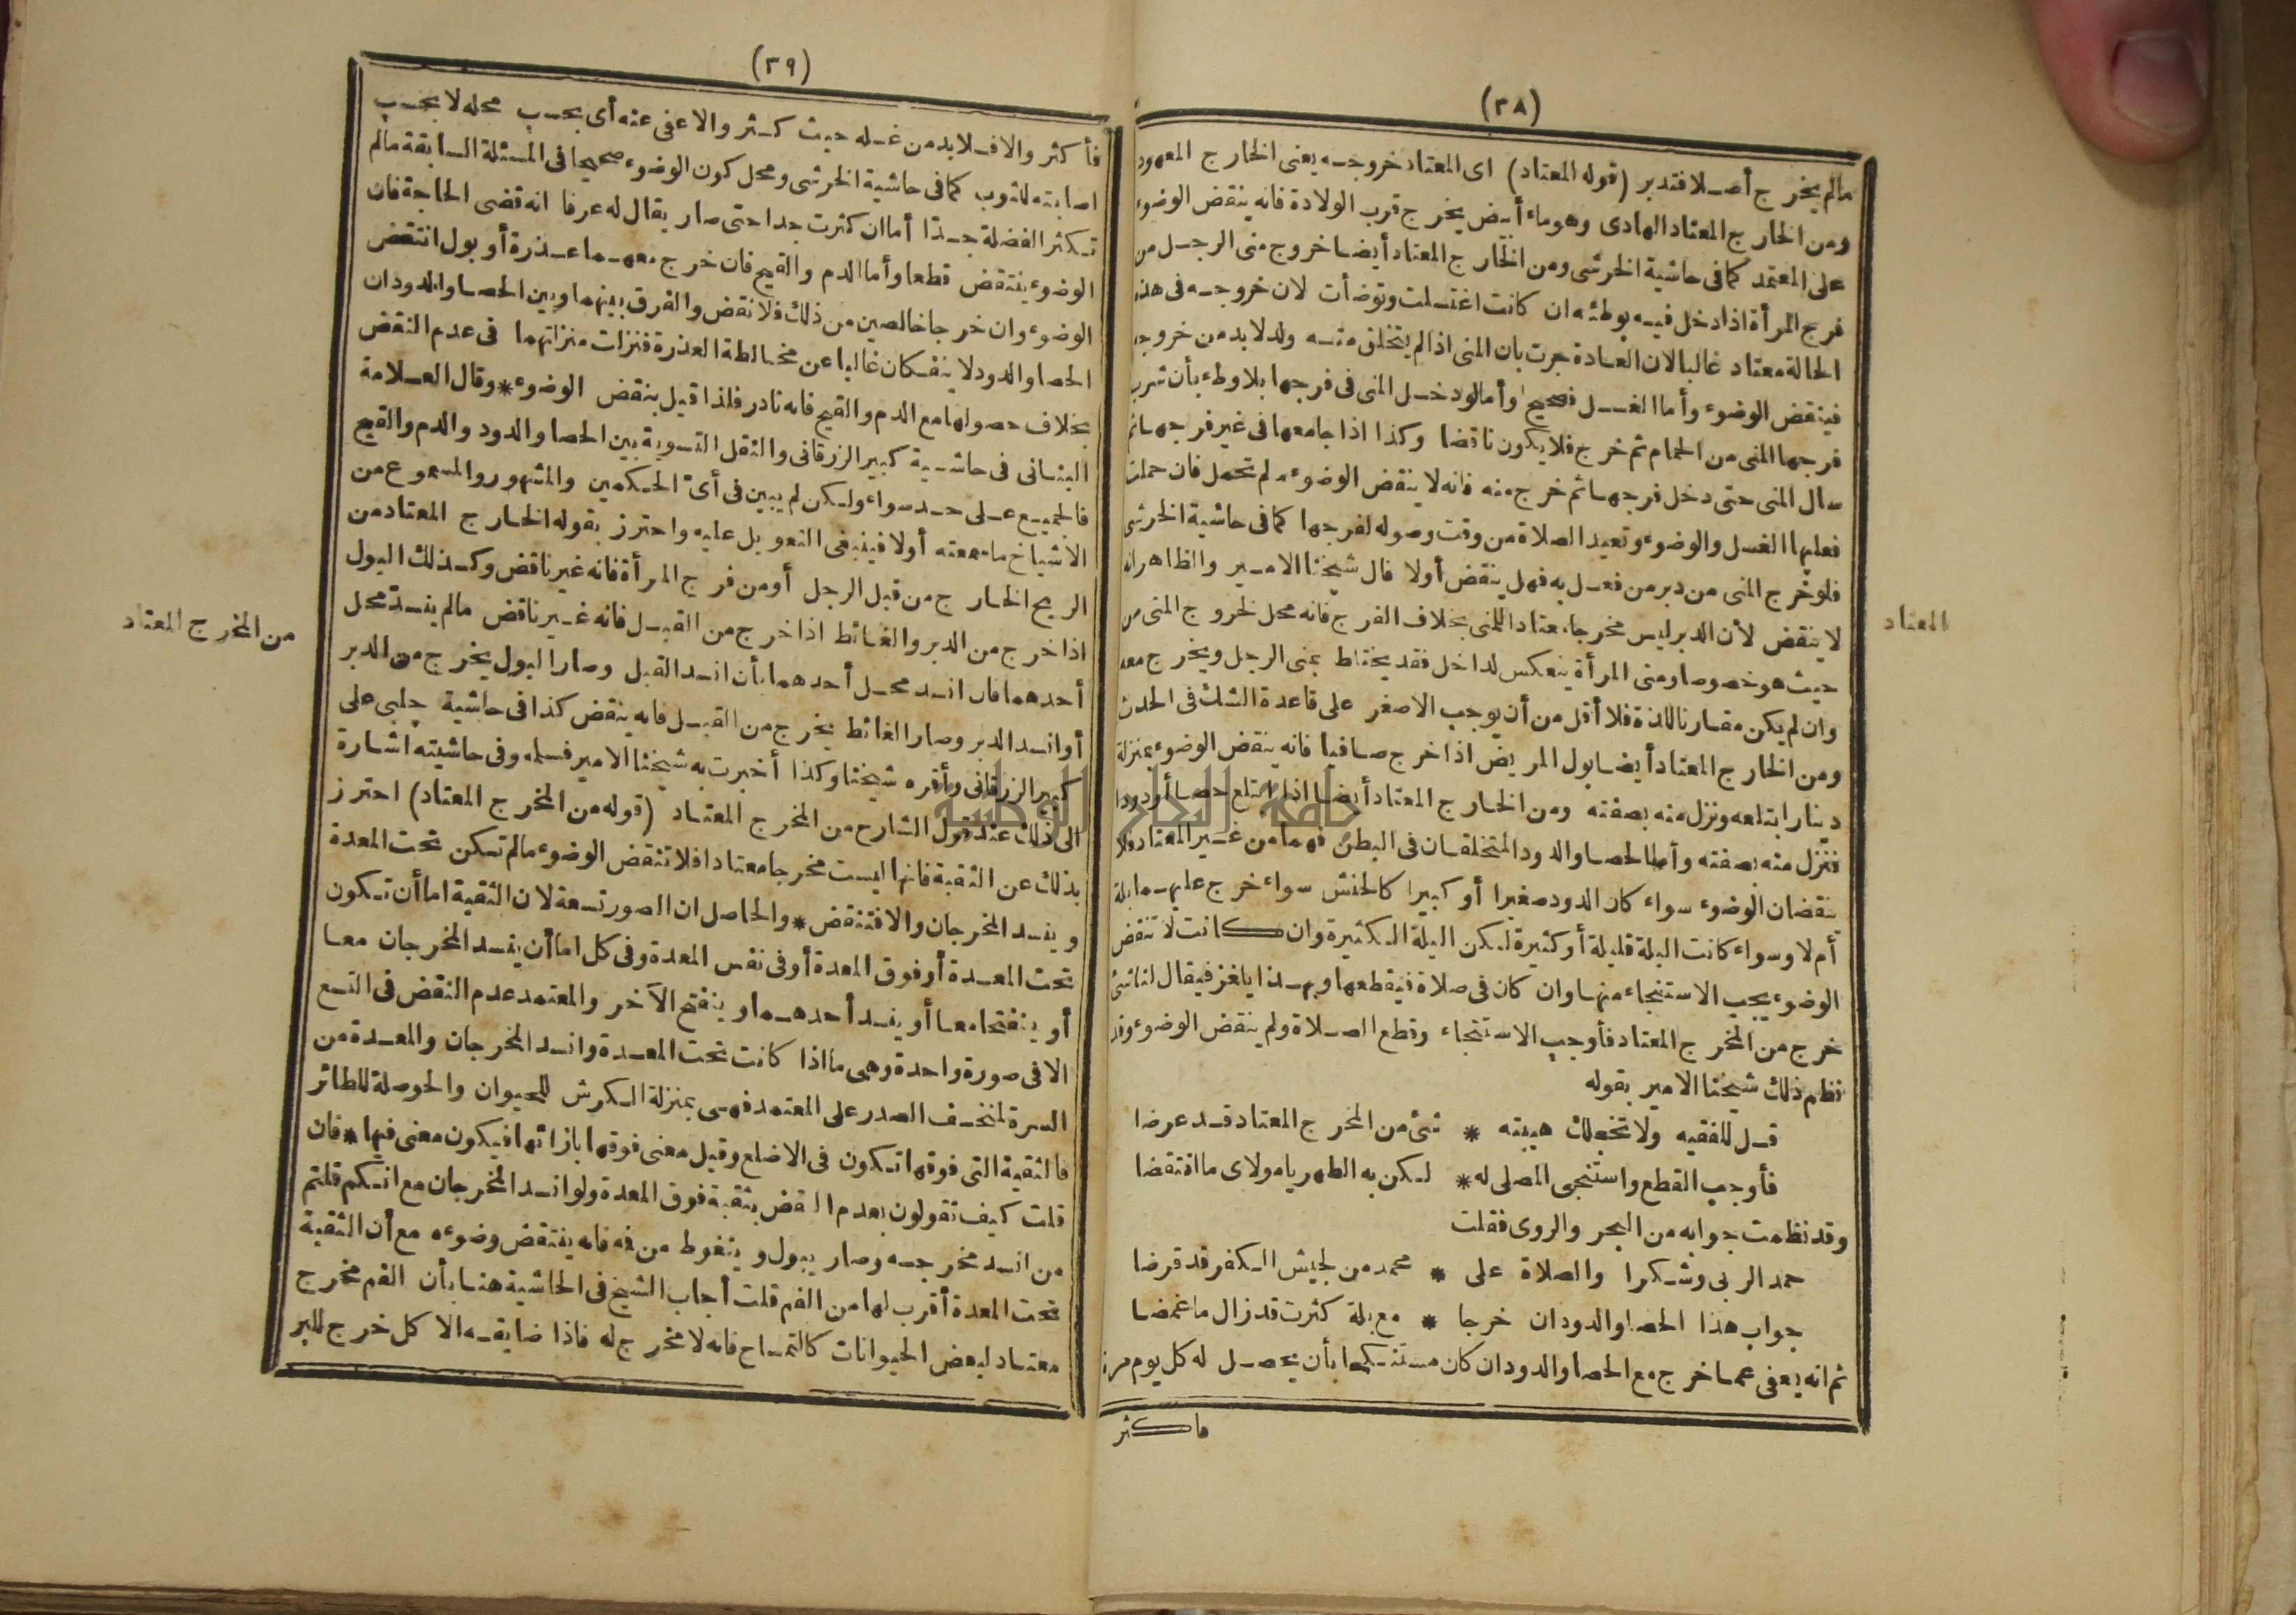 (٣٨)
مالم يخرج أصلا فتدبر (قوله المعتاد) اى المعتاد خروجه يعنى الخارج المعهود
ومن الخارج المعتاد الهادى وهو ماء أبيض يخرج قرب الولادة فانه ينقض الوضوء
على المعتمد كما فى حاشية الخرشى ومن الخارج المعتاد أيضا خروج منى الرجل من
فرج المرأة اذا دخل فيه بوطئه ان كانت اغتسلت وتوضأت لان خروجه فى هذه
الحالة معتاد غالبا لان العادة جرت بان المنى اذا لم يتخلق منه ولد لابد من خروجه
فينقض الوضوء وأما الغسل فصحيح وأما لو دخل المنى فى فرجها بلا وطء بأن شرب
فرجها المنى من الحمام ثم خرج فلا يكون ناقضا وكذا اذا جامعها فى غير فرجها ثم
سال المنى حتى دخل فرجها ثم خرج منه فانه لا ينقض الوضوء مالم تحمل فان حملت
فعليها الغسل والوضوء وتعيد الصلاة من وقت وصوله لفرجها كما فى حاشية الخرشى
فلو خرج المنى من دبر من فعل به فهل ينقض أولا قال شيخنا الامير والظاهر انه
لا ينقض لأن الدبر ليس مخرجا معتادا للمنى بخلاف الفرج فانه محل لخروج المنى من
حيث هو خصوصا ومنى المرأة ينعكس لداخل فقد يختلط بمنى الرجل ويخرج معه
وان لم يكن مقارنا للذة فلا أقل من أن يوجب الاصغر على قاعدة الشك فى الحدث
ومن الخارج المعتاد أيضا بول المريض اذا خرج صافيا فانه ينقض الوضوء بمنزلة
دينار ابتلعه ونزل منه بصفته ومن الخارج المعتاد أيضا اذا ابتلع حصا أو دودا
فنزل منه بصفته وأما الحصا والدود المتخلقان فى البطن فهما من غير المعتاد فلا
ينقضان الوضوء سواء كان الدود صغيرا أو كبيرا كالحنش سواء خرج عليهما بلة
أم لا وسواء كانت البلة قليلة أو كثيرة لكن البلة الكثيرة وان كانت لا تنقض
الوضوء يجب الاستنجاء منها وان كان فى صلاة فيقطعها وبهذا يا لغز فيقال لنا شئ
خرج من المخرج المعتاد فأوجب الاستنجاء وقطع الصلاة ولم ينقض الوضوء وقد
نظم ذلك شيخنا الامير بقوله
قل للفقيه ولا تخجلك هيبته * شئ من المخرج المعتاد قد عرضا
فأوجب القطع واستنجى المصلى له * لكن به الطهر يا مولاى ما انتقضا
وقد نظمت جوابه من البحر والروى فقلت
حمدا لربى وشكرا والصلاة على * محمد من لجيش الكفر قد قرضا
جواب هذا الحصا والدود ان خرجا * مع بلة كثرت قد زال ما غمضا
ثم انه يعفى عما خرج مع الحصا والدود ان كان مستنكحا بأن يحصل له كل يوم مرة
فاكثر
المعتاد
(٣٩)
فأكثر والا فلابد من غسله حيث كثر والا عفى عنه أى بحسب محله لا بحسب
اصابته للثوب كما فى حاشية الخرشى ومحل كون الوضوء صحيحا فى المسئلة السابقة مالم
تكثر الفضلة جدّا أما ان كثرت جدا حتى صار يقال له عرفا انه قضى الحاجة فان
الوضوء ينتقض قطعا وأما الدم والقيح فان خرج معهما عذرة أو بول انتقض
الوضوء وان خرجا خالصين من ذلك فلا نقض والفرق بينهما وبين الحصا والدود ان
الحصا والدود لا ينفكان غالبا عن مخالطة العذرة فنزلت منزلتهما فى عدم النقض
بخلاف حصولها مع الدم والقيح فانه نادر فلذا قيل بنقض الوضوء * وقال العلامة
البنانى فى حاشية كبير الزرقانى والنقل التسوية بين الحصا والدود والدم والقيح
فالجميع على حد سواء ولكن لم يبين فى أىّ الحكمين والمشهور والمسموع من
الاشياخ ما سمعته أولا فينبغى التعويل عليه واحترز بقوله الخارج المعتاد من
الريح الخارج من قبل الرجل أو من فرج المرأة فانه غير ناقض وكذلك البول
اذا خرج من الدبر والغائط اذا خرج من القبل فانه غير ناقض مالم ينسدّ محل
أحدهما فان انسد محل أحدهما بأن انسد القبل وصار البول يخرج من الدبر
أو انسد الدبر وصار الغائط يخرج من القبل فانه ينقض كذا فى حاشية چلبى على
كبير الزرقانى وأقره شيخنا وكذا أخبرت به شيخنا الامير فسلمه وفى حاشيته اشارة
الى ذلك عند قول الشارح من المخرج المعتاد (قوله من المخرج المعتاد) احترز
بذلك عن الثقبة فانها ليست مخرجا معتادا فلا تنقض الوضوء مالم تكن تحت المعدة
وينسد المخرجان والا فتنقض * والحاصل ان الصور تسعة لان الثقبة اما أن تكون
تحت المعدة أو فوق المعدة أو فى نفس المعدة وفى كل اما أن ينسد المخرجان معا
أو ينفتحا معا أو ينسد أحدهما وينفتح الآخر والمعتمد عدم النقض فى التسع
الا فى صورة واحدة وهى ما اذا كانت تحت المعدة وانسد المخرجان والمعدة من
السرة لمنخسف الصدر على المعتمد فهى بمنزلة الكرش للحيوان والحوصلة للطائر
فالثقبة التى فوقها تكون فى الاضلع وقيل معنى فوقها بازائها فيكون معنى فيها * فان
قلت كيف تقولون بعدم النقض بثقبة فوق المعدة ولو انسد المخرجان مع انكم قلتم
من انسد مخرجه وصار يبول ويتغوط من فه فانه ينتقض وضوءه مع أن الثقبة
تحت المعدة أقرب لها من الفم قلت أجاب الشيخ فى الحاشية هنا بأن الفم مخرج
معتاد لبعض الحيوانات كالتمساح فانه لا مخرج له فاذا ضايقه الاكل خرج للبر
من المخرج المعتاد
جامعة النجاح الوطنية